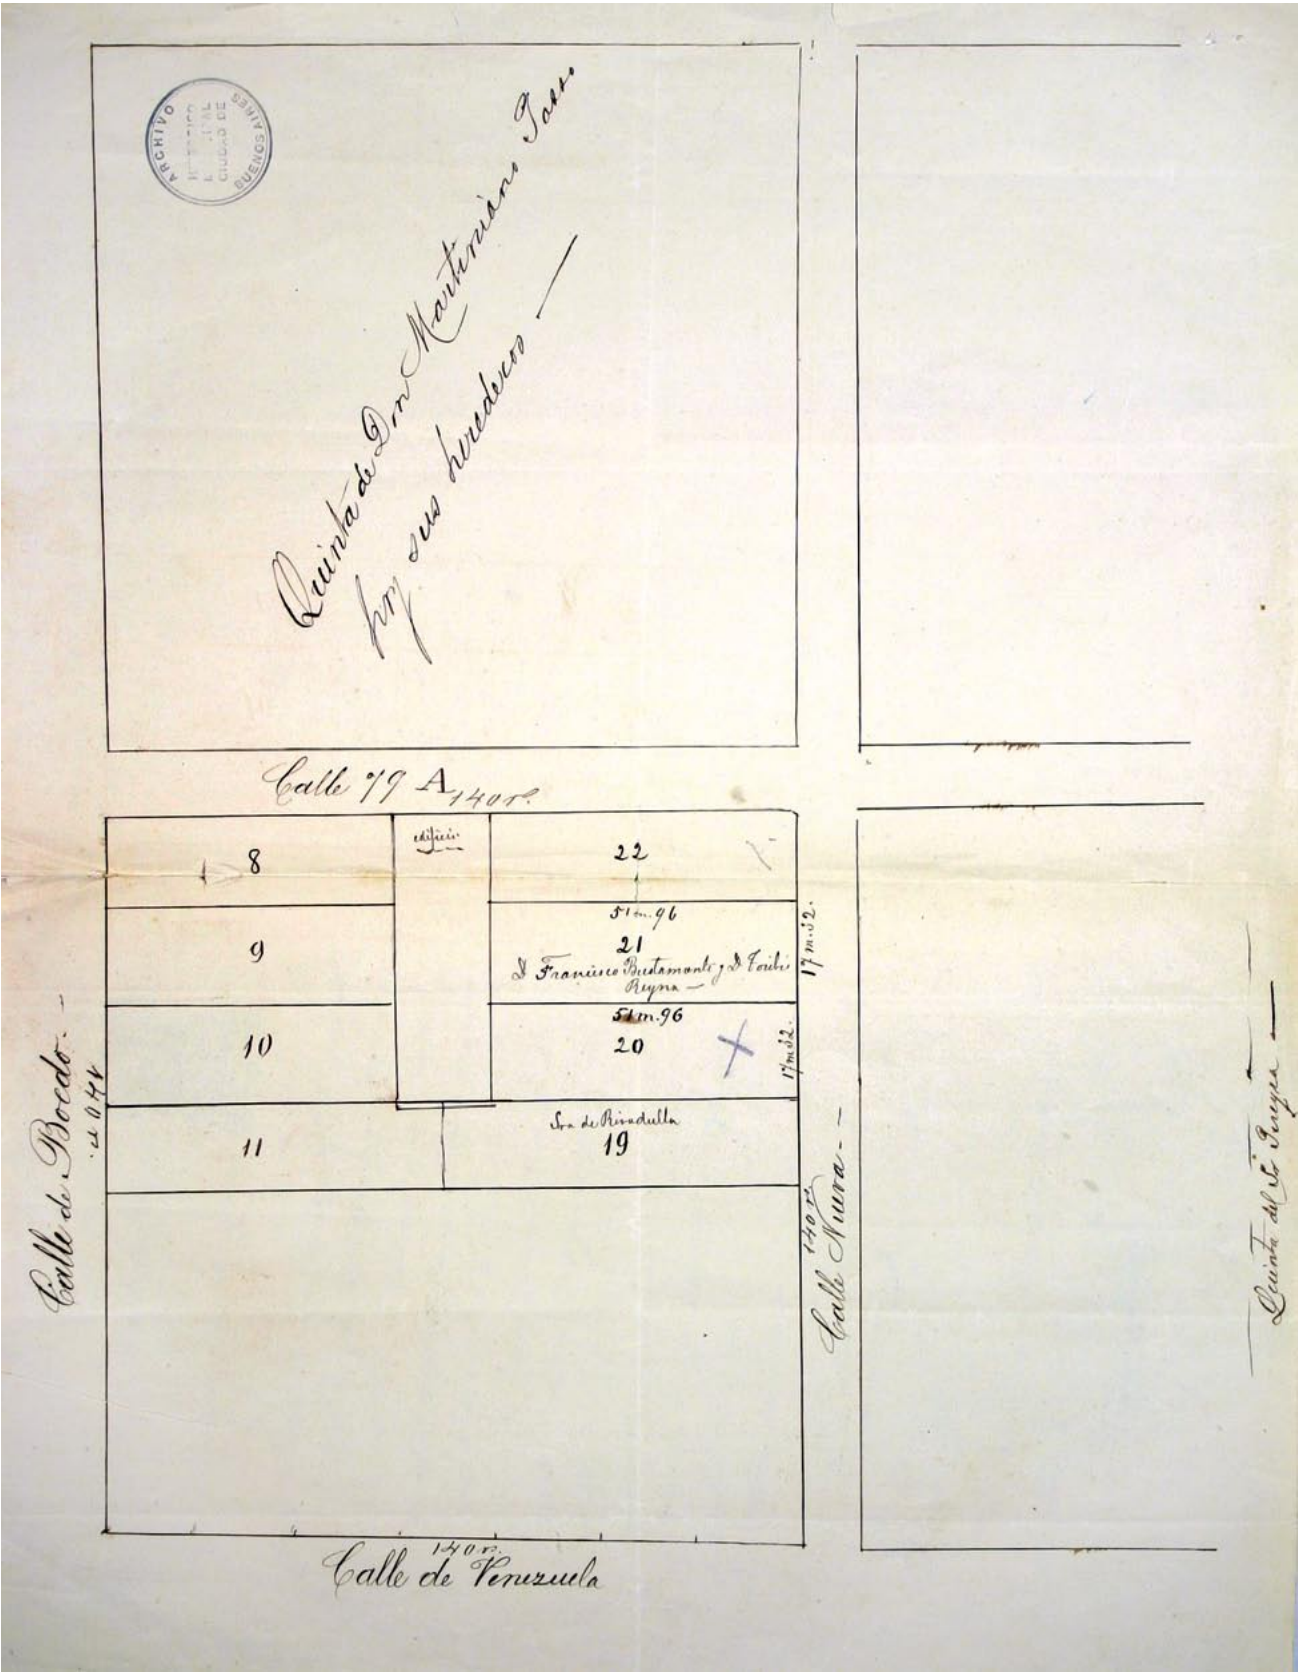 ARCHIVO
CIUDAD DE
BUENOS AIRES
Quinta de Don Martiniano
hoy sus herederos —
Calle 79 A
140 vs.
8
edificio
22
51 m. 96
17 m. 32.
9
21
D Francisco Bustamante y D Toribio
Reyna —
51 m. 96
17 m 32.
10
20
Sra de Rivadulla
11
19
Calle de Boedo. —
140 v.
Calle Nueva - -
140 vs.
Quinta del Sr Pereyra —
140 vs.
Calle de Venezuela